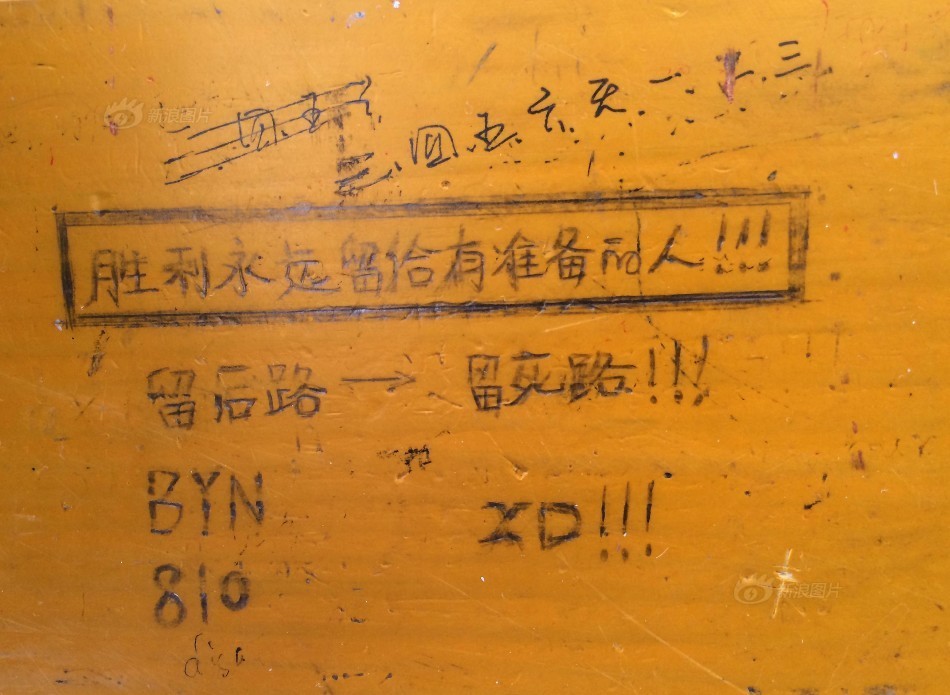 新浪图片
三.四.五.六.天.一.二.三.
胜利永远留给有准备的人!!!
留后路→留死路!!!
BYN XD!!!
810
新浪图片